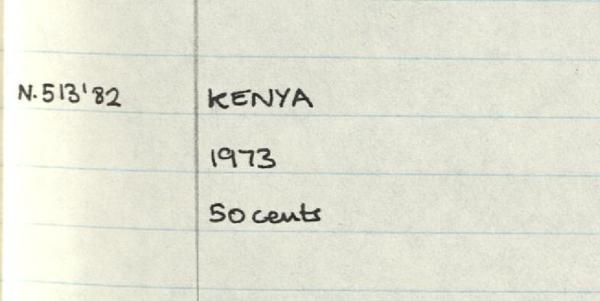 N.513'82 KENYA
1973
50 cents